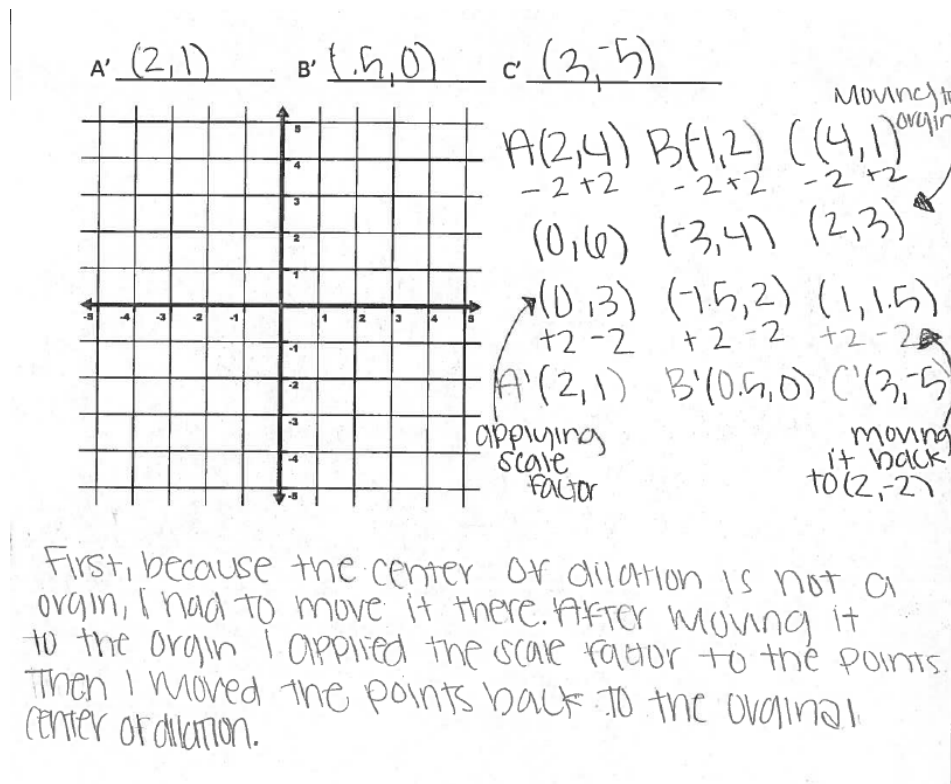 A' (2,1) B' (.5,0) C' (3,-5)
Moving to
orgin
A(2,4) B(-1,2) C(4,1)
-2+2 -2+2 -2+2
(0,6) (-3,4) (2,3)
(0,3) (-1.5,2) (1,1.5)
+2-2 +2-2 +2-2
A'(2,1) B'(0.5,0) C'(3,-5
applying
scale
factor
moving
it back
to (2,-2)
5
4
3
2
1
-5 -4 -3 -2 -1 1 2 3 4 5
-1
-2
-3
-4
-5
First, because the center of dilation is not a
orgin, I had to move it there. After moving it
to the orgin I applied the scale factor to the points.
Then I moved the points back to the orginal
center of dilation.